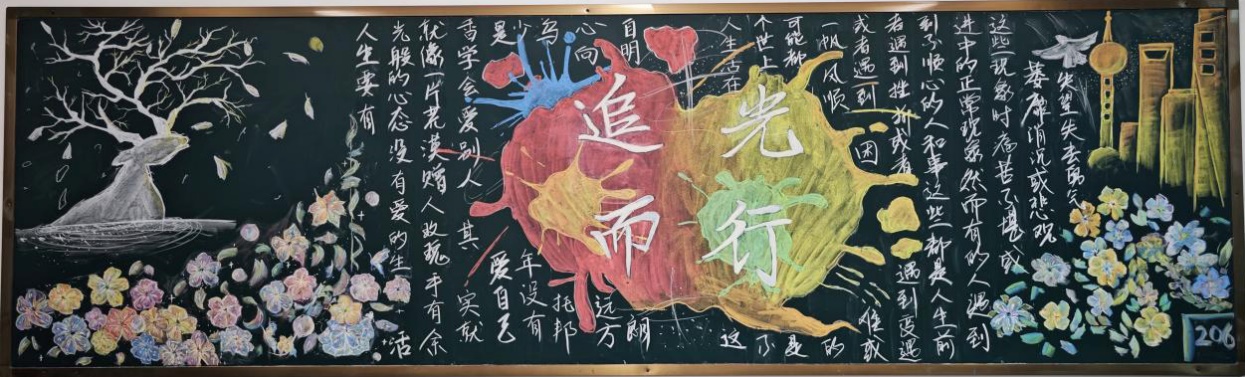 人生要有
光般的心态没有爱的生活
就像一片荒漠赠人玫瑰手有余
香学会爱别人其实就
是爱自己
少年没有
乌托邦
心向远方
自明朗
追光
而行
人生活在这
个世上不
可能都是
一帆风顺的
或者遇到困难或
者遇到挫折或者遇到更遇
到不顺心的人和事这些都是人生前
进中的正常现象然而有的人遇到
这些现象时痛苦不堪或
萎靡消沉或悲观
失望失去勇气
206